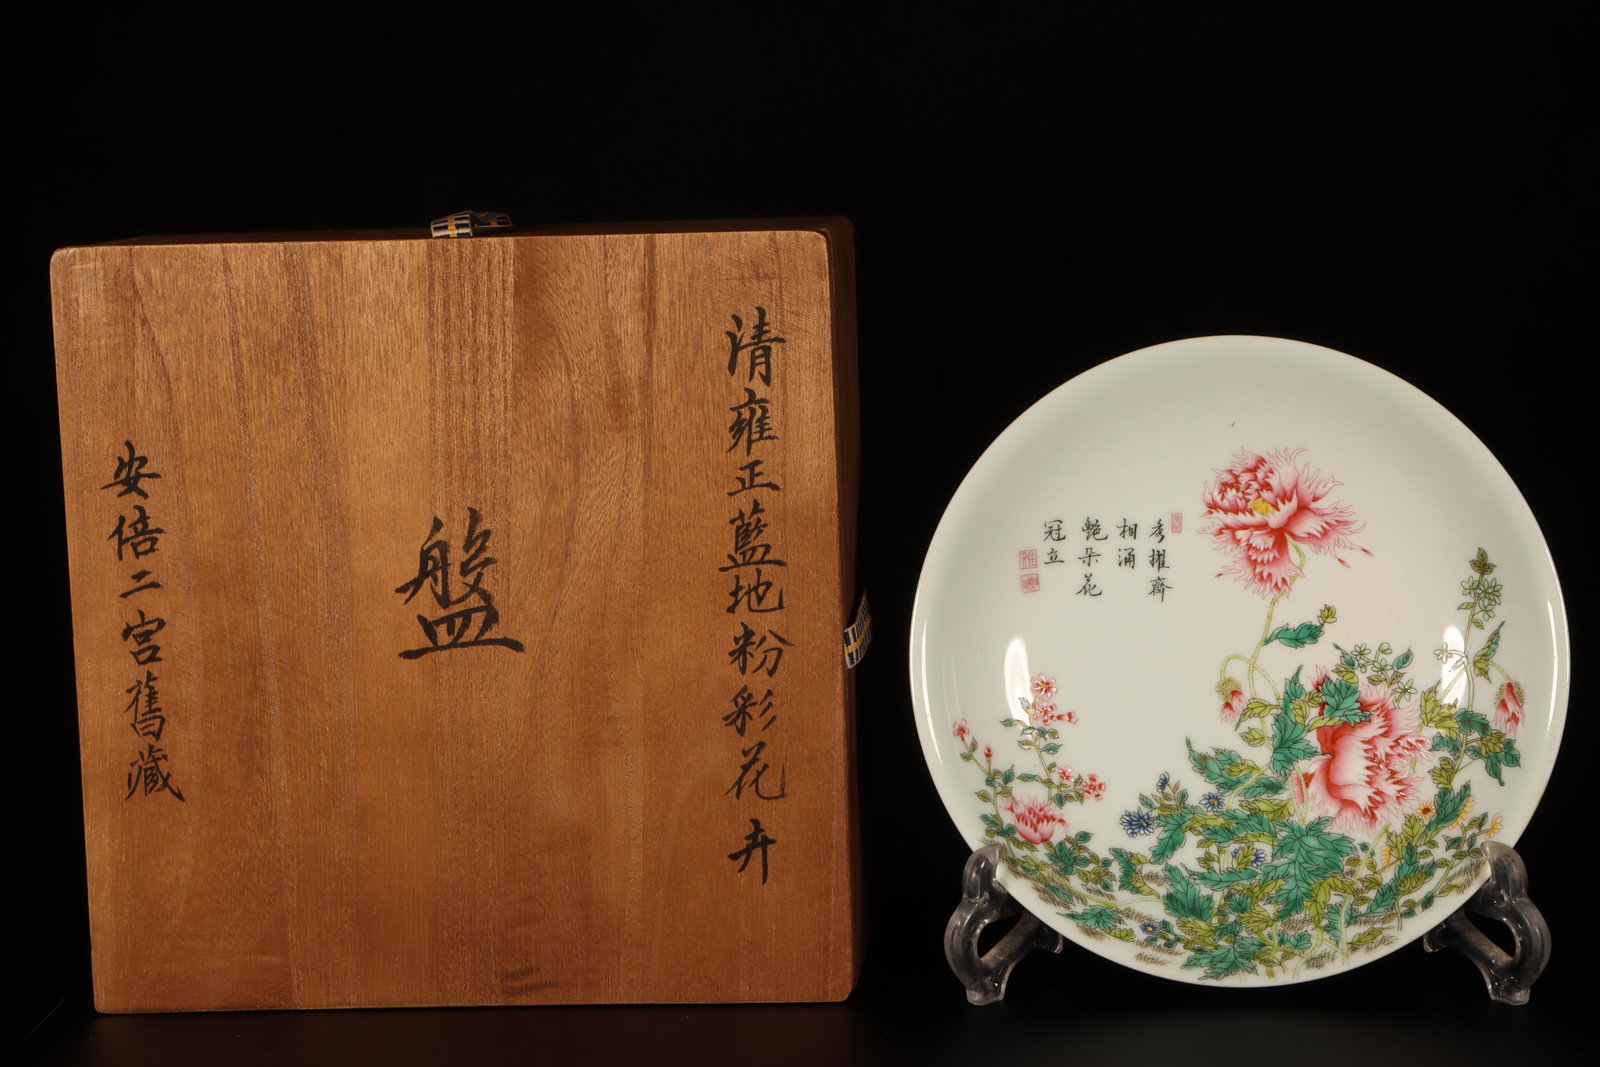 清雍正藍地粉彩花卉
盤
安倍二宮舊藏
秀擢齊
相涌
艶朵花
冠立